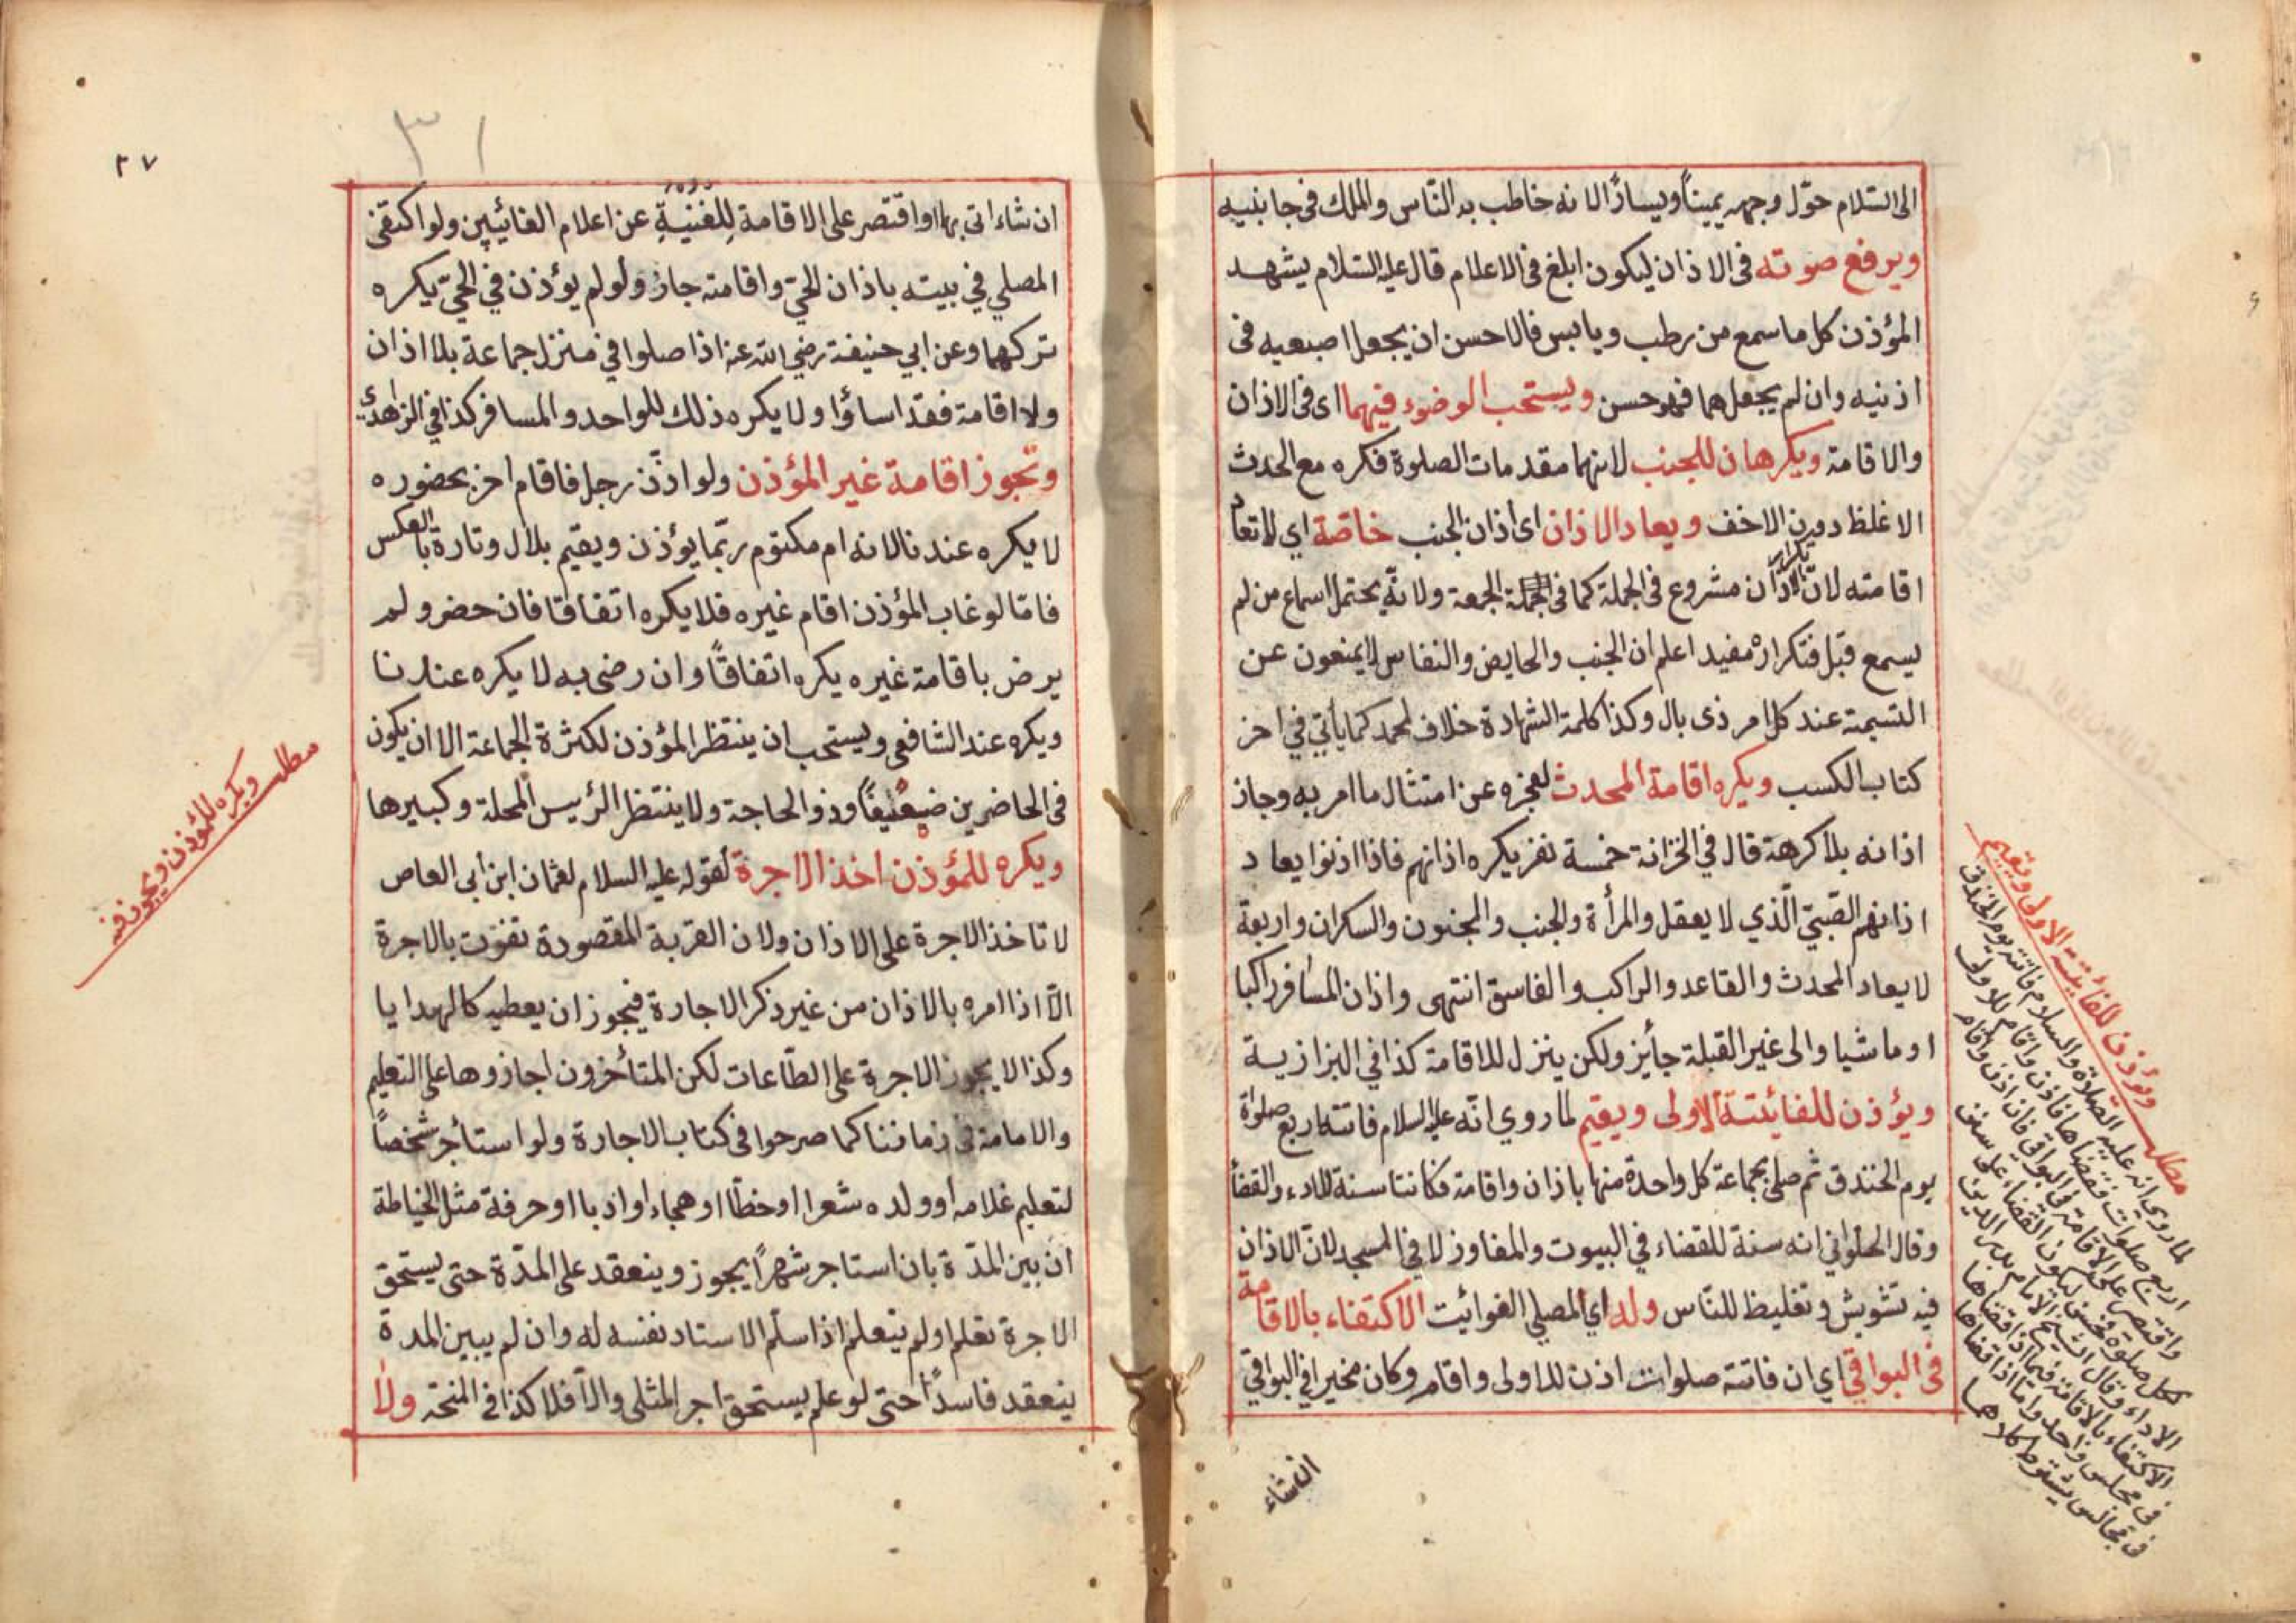 الى السلام حوّل وجهه يميناً ويساراً لانه خاطب به النّاس والملك فى جانبيه
ويرفع صوته فى الاذان ليكون ابلغ فى الاعلام قال عليه السلام يشهد
المؤذن كل ما سمع من رطب ويابس فالاحسن ان يجعل اصبعيه فى
اذنيه وان لم يجعلهما فهو حسن ويستحب الوضوء فيهما اى فى الاذان
والاقامة ويكرهان للجنب لانهما مقدمات الصلوة فكره مع الحدث
الاغلظ دون الاخف ويعاد الاذان اى اذان الجنب خاصّة اي لا تعاد
اقامته لانّ تكرار الاذان مشروع فى الجملة كما فى الجمعة ولانّه يحتمل اسماع من لم
يسمع قبل فتكراره مفيد اعلم ان الجنب والحايض والنفاس لا يمنعون عن
التسمية عند كل امر ذى بال وكذا كلمة الشهادة خلاف لمحمد كما يأتي في اخر
كتاب الكسب ويكره اقامة المحدث لعجزه عن امتثال ما امر به وجاز
اذانه بلا كرهة قال في الخزانة خمسة نفر يكره اذانهم فاذا اذنوا يعاد
اذانهم الصّبيّ الّذي لا يعقل والمرأة والجنب والمجنون والسكران واربعة
لا يعاد المحدث والقاعد والراكب والفاسق انتهى واذان المسافر راكبا
او ماشيا والى غير القبلة جايز ولكن ينزل للاقامة كذا في البزازية
ويؤذن للفائتة الاولى ويقيم لما روي انّه عليه السلام فاتته اربع صلواة
يوم الخندق ثم صلى بجماعة كل واحدة منها باذان واقامة فكانتا سنة للاداء والقضا
وقال الحلواني انه سنة للقضاء في البيوت والمفاوز لا في المسجد لانّ الاذان
فيه تشويش وتغليظ للنّاس وله اي المصلى الفوائيت الاكتفاء بالاقامة
فى البواقي اي ان فاتته صلوات اذن للاولى واقام وكان مخيرا في البواقي
ان شاء
مطلب ويؤذن للفائتة الاولى ويقيم
لما روي انه عليه الصلاة والسلام فاتته يوم الخندق
اربع صلوات فقضاها فاذن واقام للاولى
واقتصر على الاقامة في البواقي فان اذن واقام
لكل صلوة فحسن ليكون القضاء على سنن
الاداء وقال الشيخ الامام بدر الدين
الاكتفاء بالاقامة فيما اذا قضاها
فى مجلس واحد واما اذا قضاها
فى مجالس يشترط كلاهما
٢٧
٣١
ان شاء اتى بهما او اقتصر على الاقامة للغنية عن اعلام الغائيبين ولو اكتفى
المصلي في بيته باذان الحيّ واقامته جاز ولو لم يؤذن في الحيّ يكره
تركهما وعن ابي حنيفة رضي الله عنه اذا صلوا في منزل جماعة بلا اذان
ولا اقامة فقد اساؤا ولا يكره ذلك للواحد والمسافر كذا في الزاهدي
وتجوز اقامة غير المؤذن ولو اذّن رجل فاقام اخر بحضوره
لا يكره عندنا لانه ام مكتوم ربّما يؤذن ويقيم بلال وتارة بالعكس
فامّا لو غاب المؤذن اقام غيره فلا يكره اتفاقا فان حضر ولم
يرض باقامة غيره يكره اتفاقًا وان رضى به لا يكره عندنا
ويكره عند الشافعى ويستحب ان ينتظر المؤذن لكثرة الجماعة الا ان يكون
فى الحاضرين ضعيفًا وذو الحاجة ولا ينتظر الرئيس المحلة وكبيرها
ويكره للمؤذن اخذ الاجرة لقوله عليه السلام لعثمان ابن ابى العاص
لا تاخذ الاجرة على الاذان ولان القربة المقصودة تفوت بالاجرة
الّا اذا امره بالاذان من غير ذكر الاجارة فيجوز ان يعطيه كالهدايا
وكذا لا يجوز الاجرة على الطّاعات لكن المتأخرون اجازوها على التعليم
والامامة فى زماننا كما صرحوا فى كتاب الاجارة ولو استأجر شخصاً
لتعليم غلامه او ولده شعرا او خطّا او هجاء او ادبا او حرفة مثل الخياطة
ان بين المدّة بان استاجر شهرًا يجوز وينعقد على المدّة حتى يستحق
الاجرة تعلم او لم يتعلم اذا سلّم الاستاد نفسه له وان لم يبين المدة
ينعقد فاسداً حتى لو علم يستحق اجر المثلى والّا فلا كذا فى المنحة ولا
مطلب ويكره للمؤذن ويجوز فيه